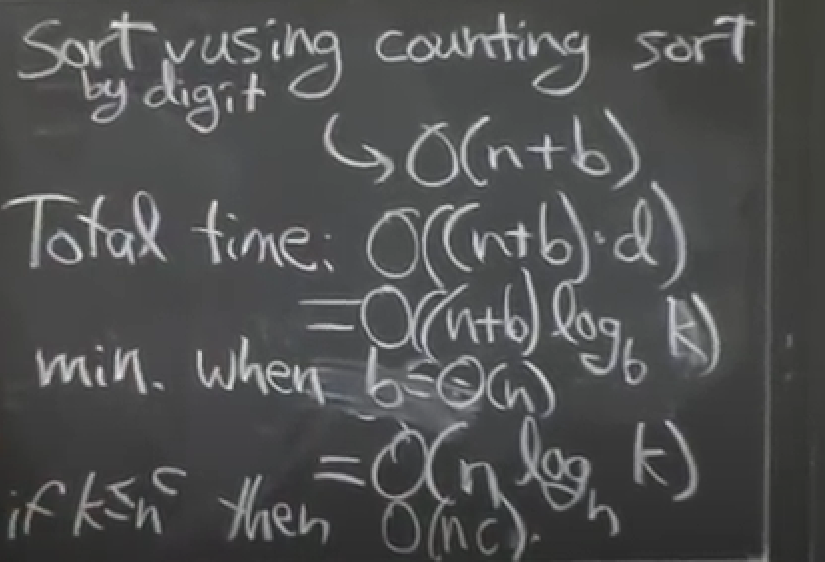 Sort ∨using counting sort
by digit
↳ O(n+b)
Total time: O((n+b)·d)
=O((n+b) log_b k)
min. when b=Θ(n)
=O(n log_n k)
if k≤n^c then O(nc).